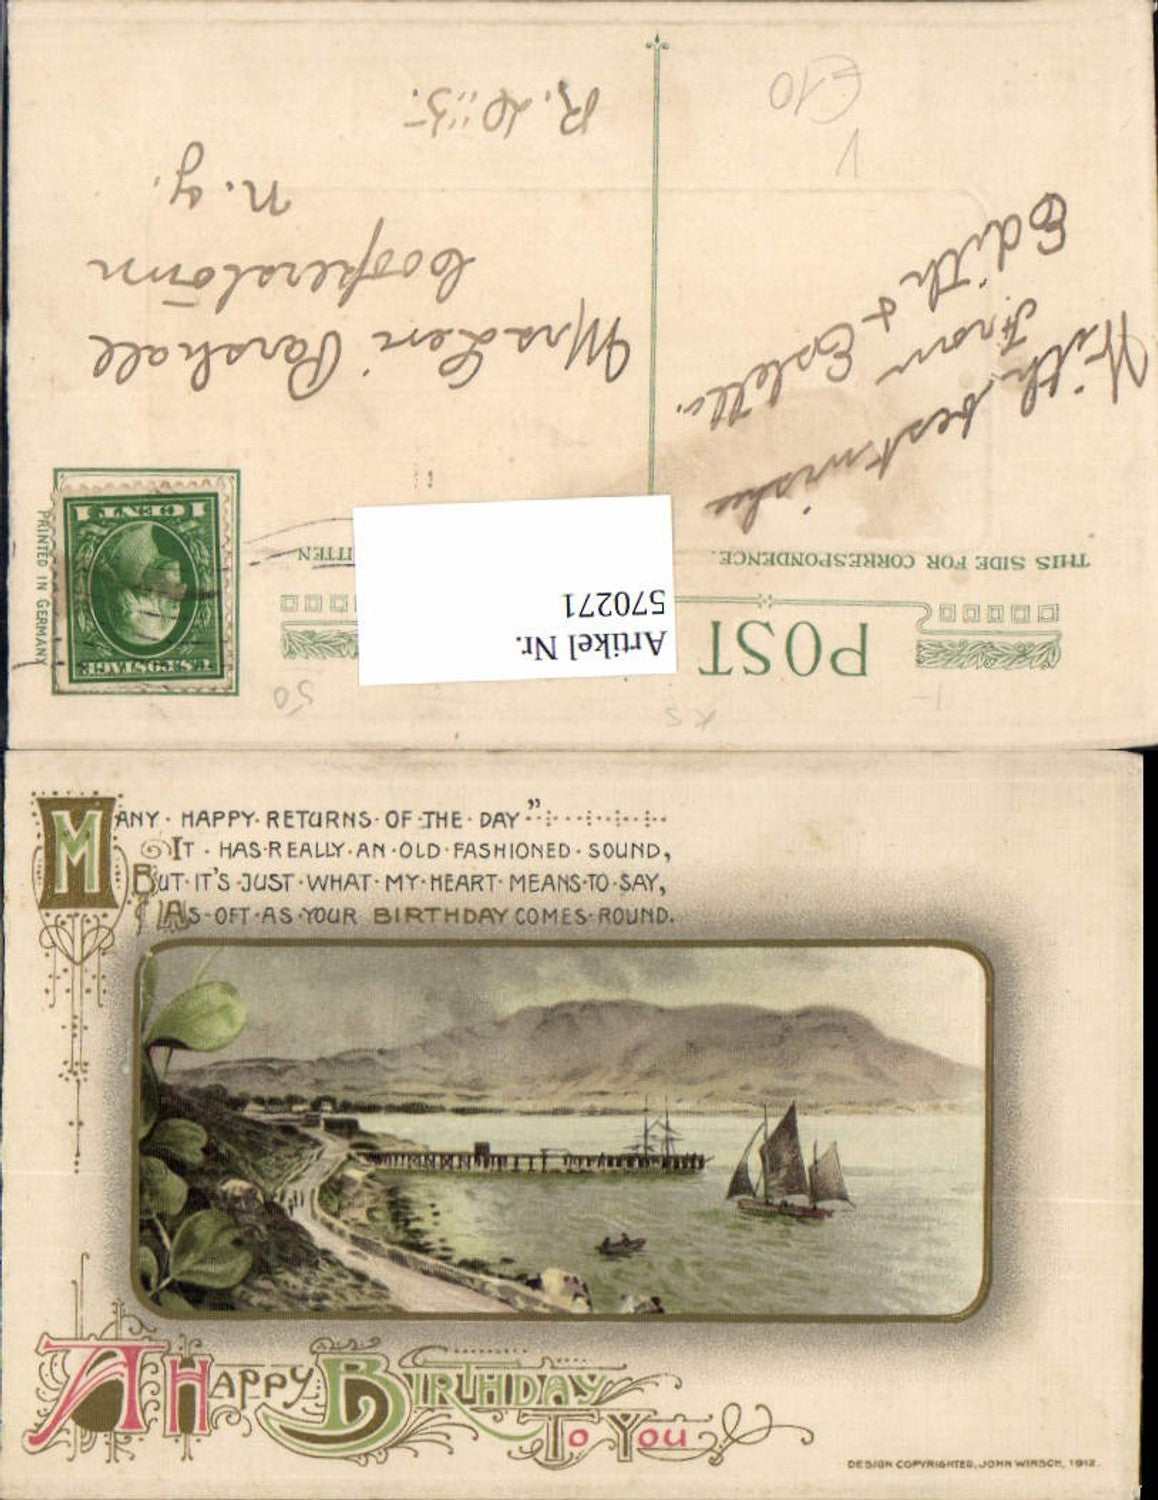 THIS SIDE FOR CORRESPONDENCE.
POST
Artikel Nr.
570271
ITTEN
PRINTED IN GERMANY
U.S. POSTAGE
1 CENT 1
With best wishes
From
Edith & Estella.
Mrs Levi Parshall
Cooperstown
N.Y.
R.D.::5.
€10
V
50
KS
1-
MANY · HAPPY · RETURNS · OF · THE · DAY"
IT · HAS · REALLY · AN · OLD · FASHIONED · SOUND,
BUT · IT'S · JUST · WHAT · MY · HEART · MEANS · TO · SAY,
AS · OFT · AS · YOUR BIRTHDAY COMES · ROUND.
A HAPPY BIRTHDAY
TO YOU
DESIGN COPYRIGHTED, JOHN WINSCH, 1912.